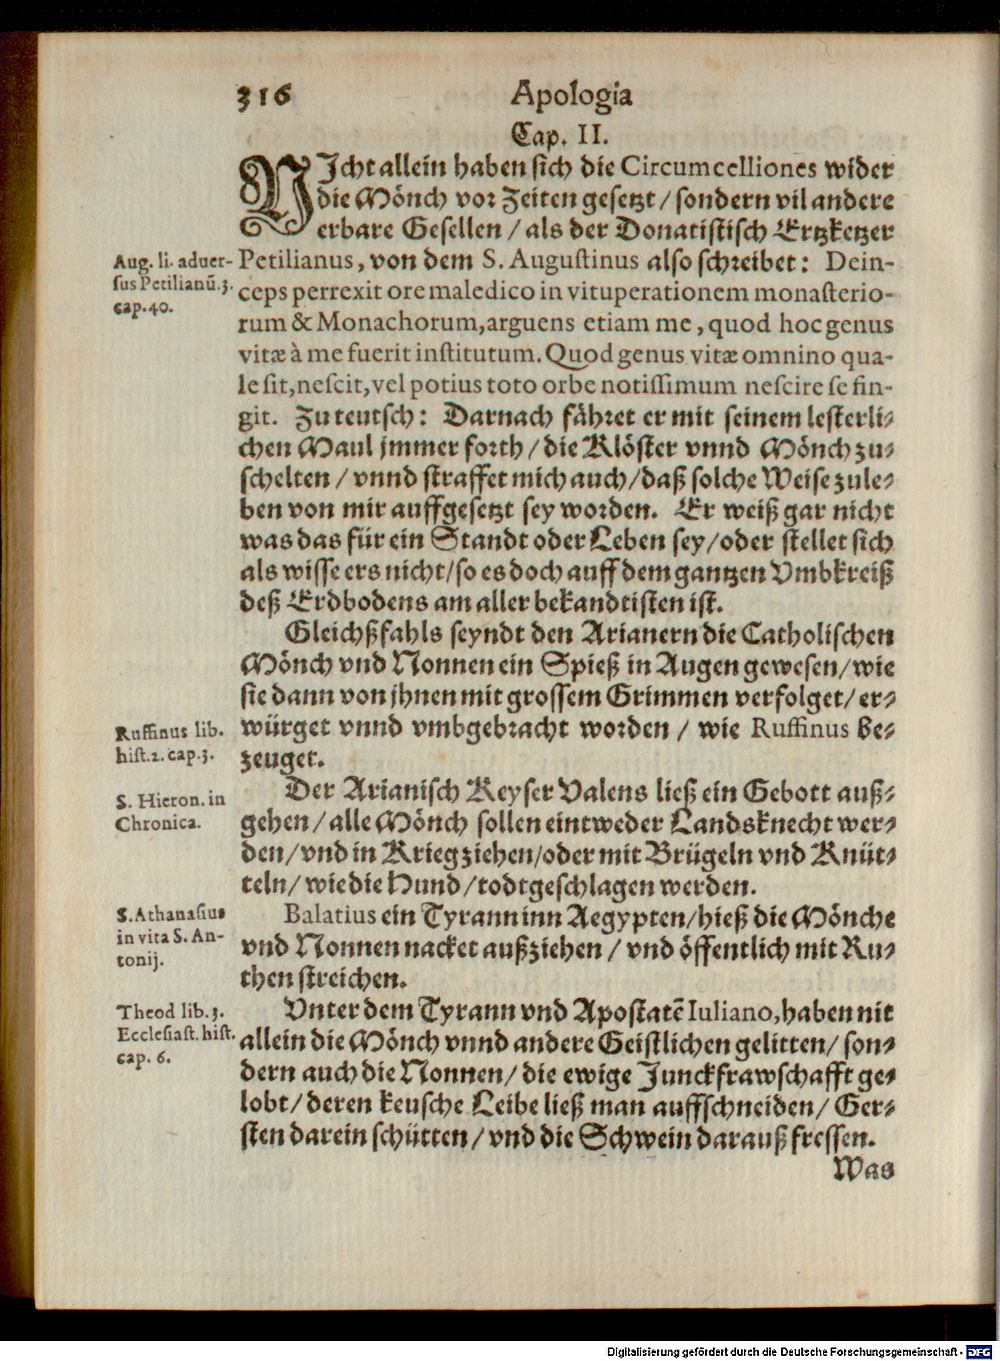 316 Apologia
Cap. II.
NIcht allein haben sich die Circumcelliones wider
die Mönch vor Zeiten gesetzt / sondern vil andere
erbare Gesellen / als der Donatistisch Ertzketzer
Petilianus, von dem S. Augustinus also schreibet: Dein-
ceps perrexit ore maledico in vituperationem monasterio-
rum & Monachorum, arguens etiam me, quod hoc genus
vitæ à me fuerit institutum. Quod genus vitæ omnino qua-
le sit, nescit, vel potius toto orbe notissimum nescire se fin-
git. Zu teutsch: Darnach fähret er mit seinem lesterli-
chen Maul jmmer forth / die Klöster vnnd Mönch zu-
schelten / vnnd straffet mich auch / daß solche Weise zule-
ben von mir auffgesetzt sey worden. Er weiß gar nicht
was das für ein Standt oder Leben sey / oder stellet sich
als wisse ers nicht / so es doch auff dem gantzen Vmbkreiß
deß Erdbodens am aller bekandtisten ist.
Gleichßfahls seyndt den Arianern die Catholischen
Mönch vnd Nonnen ein Spieß in Augen gewesen / wie
sie dann von jhnen mit grossem Grimmen verfolget / er-
würget vnnd vmbgebracht worden / wie Ruffinus be-
zeuget.
Der Arianisch Keyser Valens ließ ein Gebott auß-
gehen / alle Mönch sollen eintweder Landsknecht wer-
den / vnd in Krieg ziehen / oder mit Brügeln vnd Knüt-
teln / wie die Hund / todtgeschlagen werden.
Balatius ein Tyrann inn Aegypten / hieß die Mönche
vnd Nonnen nacket außziehen / vnd öffentlich mit Ru-
then streichen.
Vnter dem Tyrann vnd Apostatē Iuliano, haben nit
allein die Mönch vnnd andere Geistlichen gelitten / son-
dern auch die Nonnen / die ewige Junckfrawschafft ge-
lobt / deren keusche Leibe ließ man auffschneiden / Ger-
sten darein schütten / vnd die Schwein darauß fressen.
Was
Aug. li. aduer-
sus Petilianū. 3.
cap. 40.
Ruffinus lib.
hist. 2. cap. 3.
S. Hieron. in
Chronica.
S. Athanasius
in vita S. An-
tonij.
Theod lib. 3.
Ecclesiast. hist.
cap. 6.
Digitalisierung gefördert durch die Deutsche Forschungsgemeinschaft - DFG